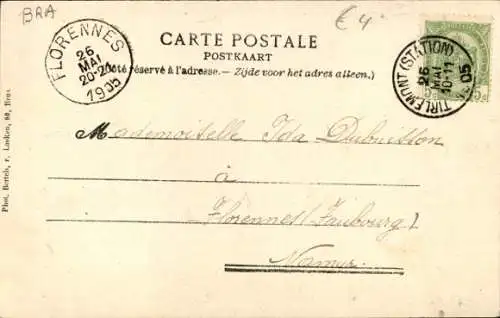 BRA
€ 4
CARTE POSTALE
POSTKAART
(Côté réservé à l'adresse.— Zijde voor het adres alleen.)
FLORENNES
26
MAI
20-21
1905
TIRLEMONT (STATION)
26
MAI
10-11
1905
Mademoiselle Ida Dubuisson
à
Florennes (Faubourg)
Namur
Phot. Bertels, r. Laeken, 80, Brux.